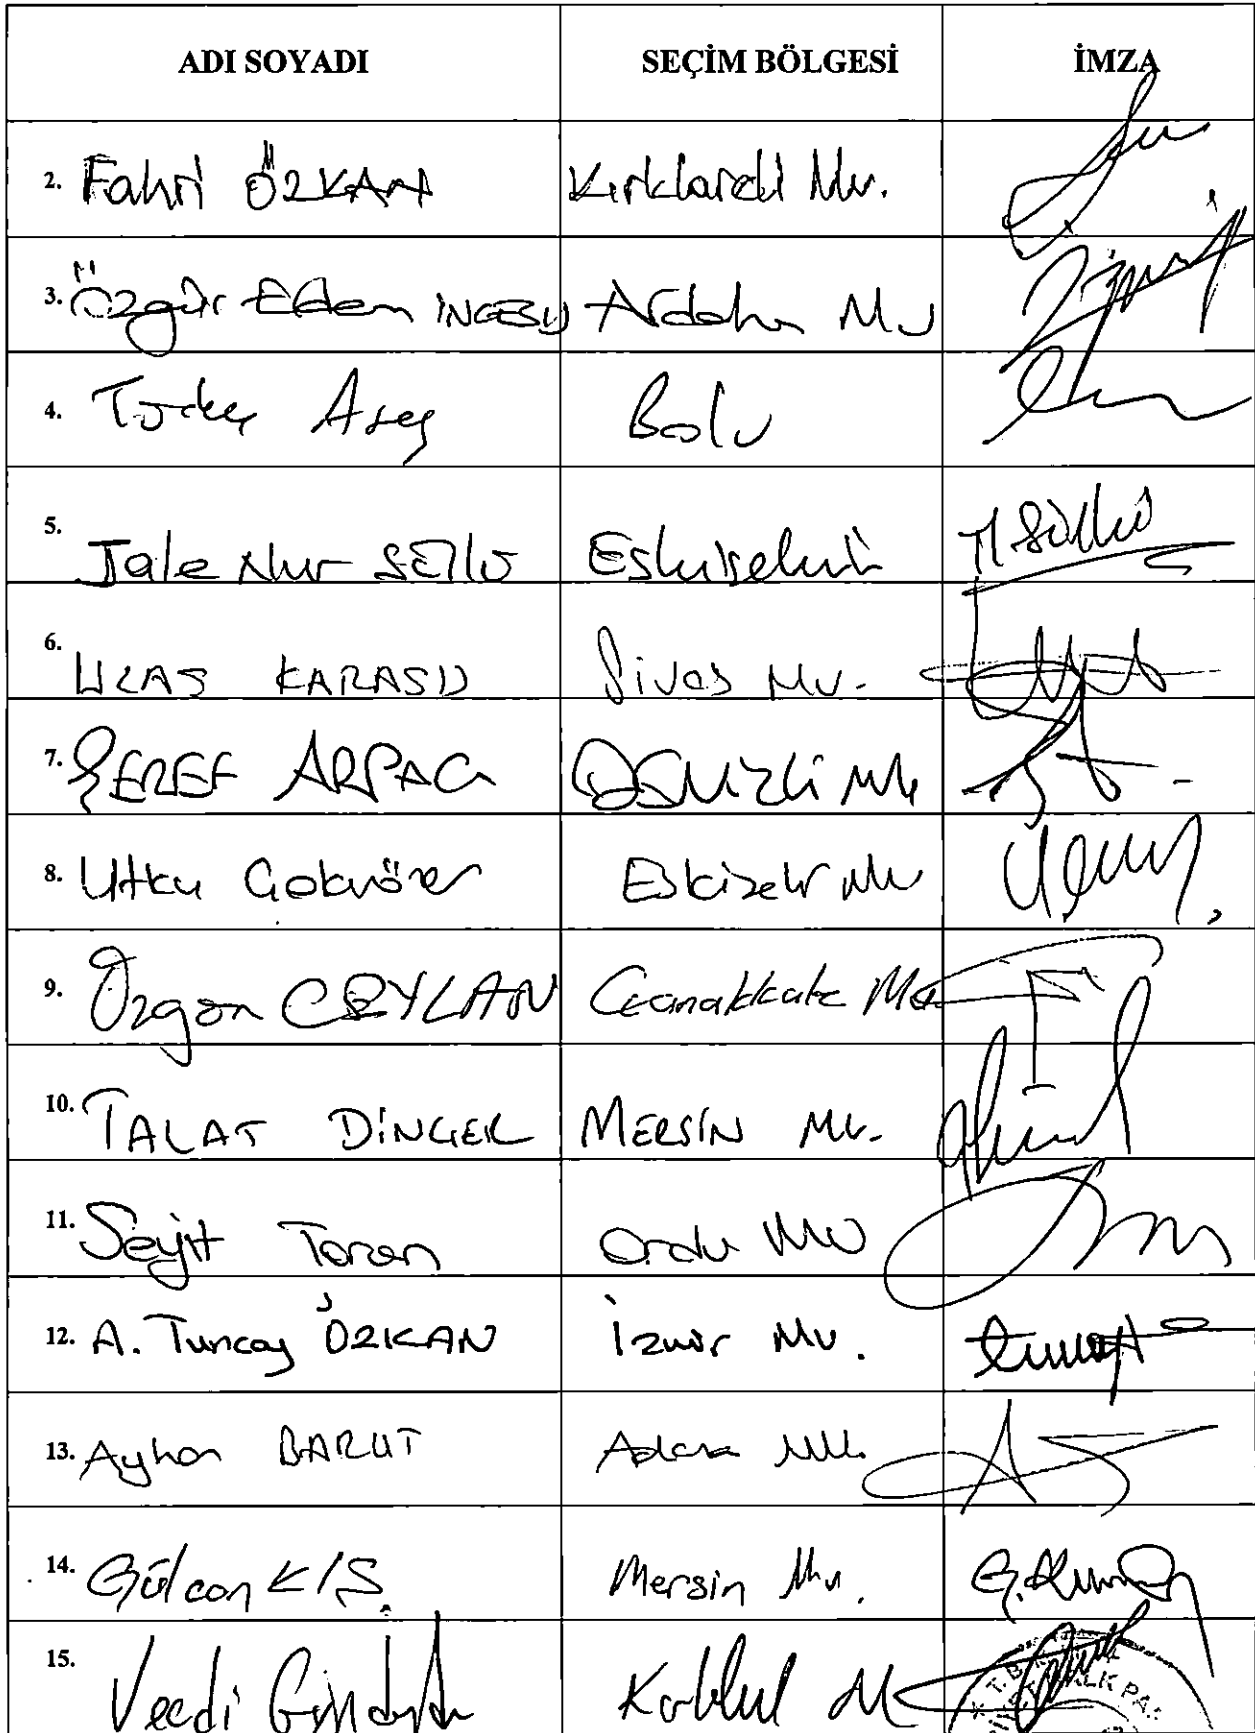 ADI SOYADI SEÇİM BÖLGESİ İMZA
2. Fahri ÖZKAN Kırklareli Mv.
3. Özgür Erdem İNCESU Ardahan Mv
4. Türker Ateş Bolu
5. Jale Nur SÜLLÜ Eskişehir
6. ULAŞ KARASU Sivas Mv.
7. ŞEREF ARPACI DENİZLİ Mv
8. Utku Çakırözer Eskişehir Mv
9. Özgür CEYLAN Çanakkale Mv
10. TALAT DİNÇER MERSİN Mv.
11. Seyit Torun Ordu Mv
12. A. Tuncay ÖZKAN İzmir Mv.
13. Ayhan BARUT Adana Mv.
14. Gülcan KIŞ Mersin Mv.
15. Vecdi Gündoğdu